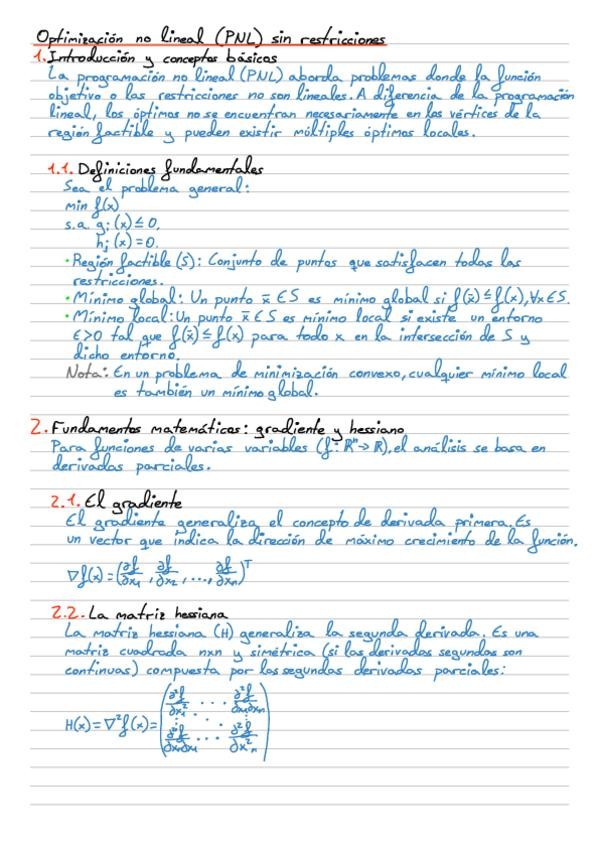 Optimización no lineal (PNL) sin restricciones
1. Introducción y conceptos básicos
La programación no lineal (PNL) aborda problemas donde la función
objetivo o las restricciones no son lineales. A diferencia de la programación
lineal, los óptimos no se encuentran necesariamente en los vértices de la
región factible y pueden existir múltiples óptimos locales.
1.1. Definiciones fundamentales
Sea el problema general:
min f(x)
s.a gᵢ(x) ≤ 0,
hⱼ(x) = 0.
• Región factible (S): Conjunto de puntos que satisfacen todas las
restricciones.
• Mínimo global: Un punto x̄ ∈ S es mínimo global si f(x̄) ≤ f(x), ∀x ∈ S.
• Mínimo local: Un punto x̄ ∈ S es mínimo local si existe un entorno
ε>0 tal que f(x̄) ≤ f(x) para todo x en la intersección de S y
dicho entorno.
Nota: En un problema de minimización convexo, cualquier mínimo local
es también un mínimo global.
2. Fundamentos matemáticos: gradiente y hessiano
Para funciones de varias variables (f: ℝⁿ → ℝ), el análisis se basa en
derivadas parciales.
2.1. El gradiente
El gradiente generaliza el concepto de derivada primera. Es
un vector que indica la dirección de máximo crecimiento de la función.
∇f(x) = (∂f/∂x₁, ∂f/∂x₂, ..., ∂f/∂xₙ)ᵀ
2.2. La matriz hessiana
La matriz hessiana (H) generaliza la segunda derivada. Es una
matriz cuadrada nxn y simétrica (si las derivadas segundas son
continuas) compuesta por las segundas derivadas parciales:
H(x) = ∇²f(x) = (∂²f/∂x₁² ... ∂²f/∂x₁∂xₙ
⋮ ... ⋮
∂²f/∂xₙ∂x₁ ... ∂²f/∂x²ₙ)